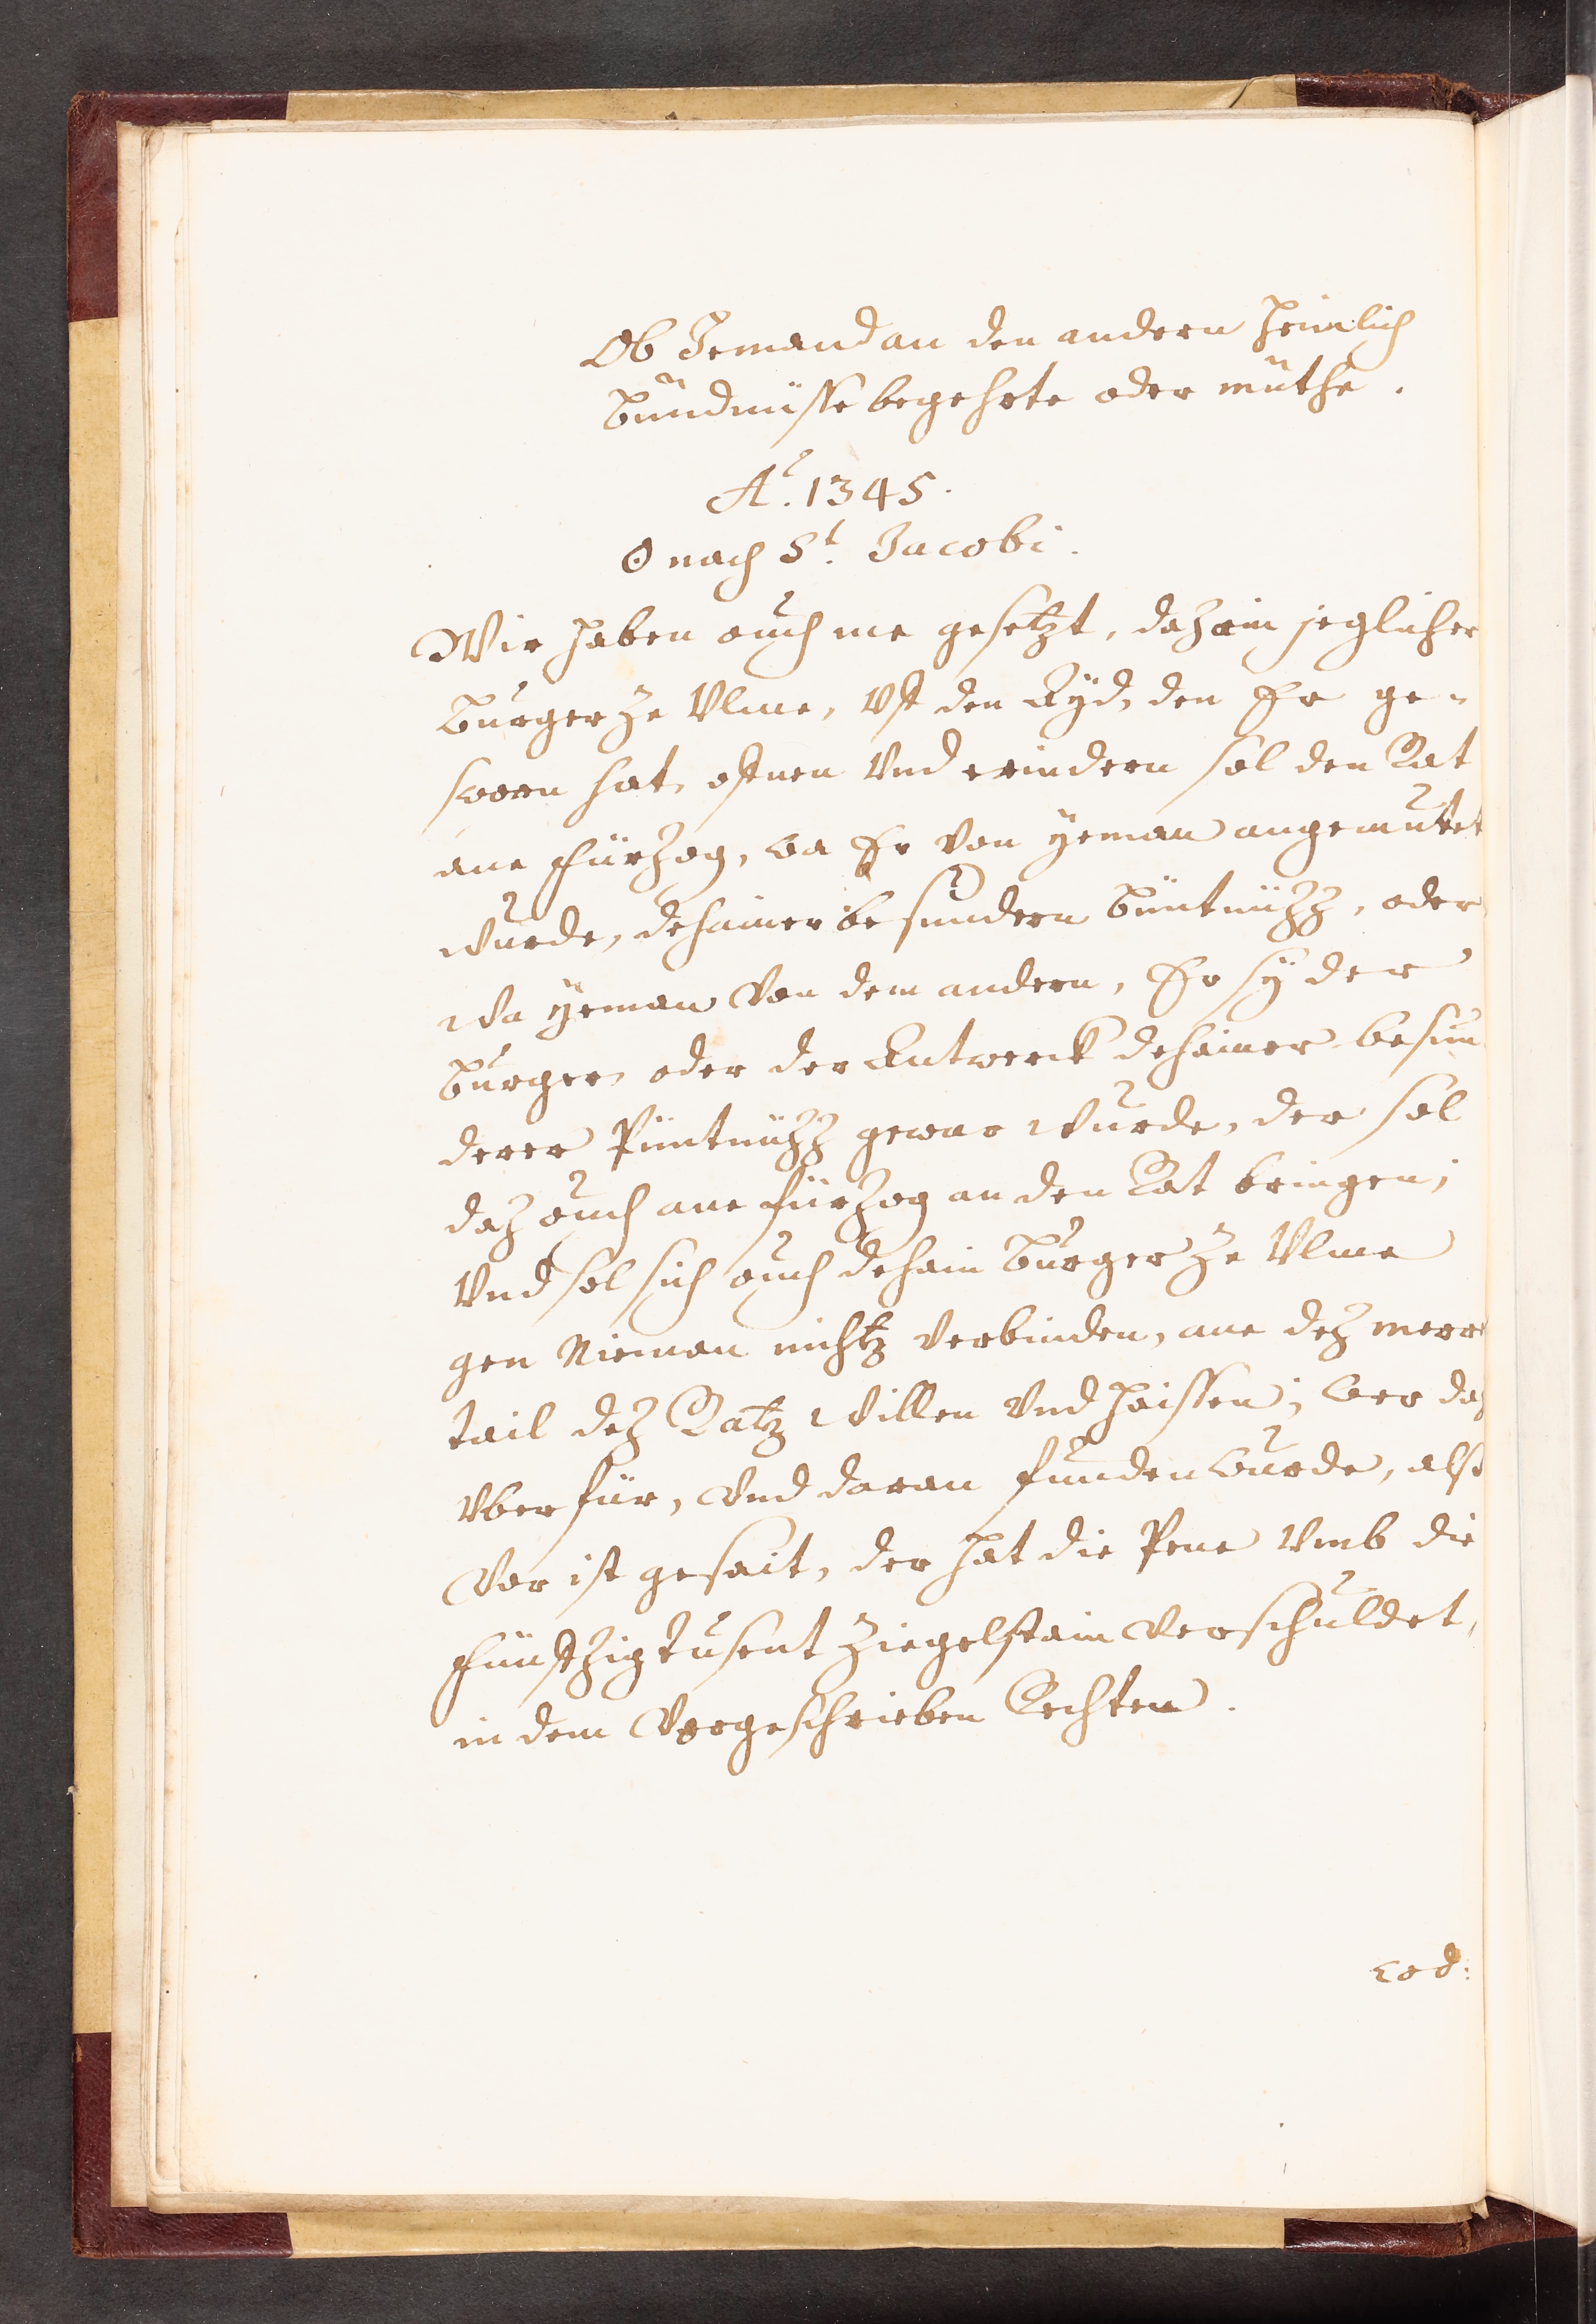 Ob Jemand an den andern heimlich
Bündnüsse begehrte oder müthe.
Ao. 1345.
☉ nach St. Jacobi.
Wir haben ouch me gesetzt, daz ain jeglicher
Burger ze Ulme, Uff den Eyd, den Er ge-
sworn hat, offnen Und erindern sol den Rat
ane fürzog, wa Er von yeman angemutet
wurde, dehainer besundern Büntnüzz, oder
wa yeman von dem andern, Er sy der
Burger oder der Antwerck dehainer besun
derer Püntnüzz gewar wurde, der sol
daz ouch ane fürzog an den Rat bringen;
Und sol sich ouch dehain Burger ze Ulme
gen Nieman nichtz verbinden, ane dez merr
tail dez Ratz willen Und haissen; wer daz
Uberfür, Und daran funden wurde, also
Vor ist gesait, der hat die Pene Umb die
fünffzig tusent Ziegelstain verschuldet,
in dem Vorgeschrieben Rechten.
eod: